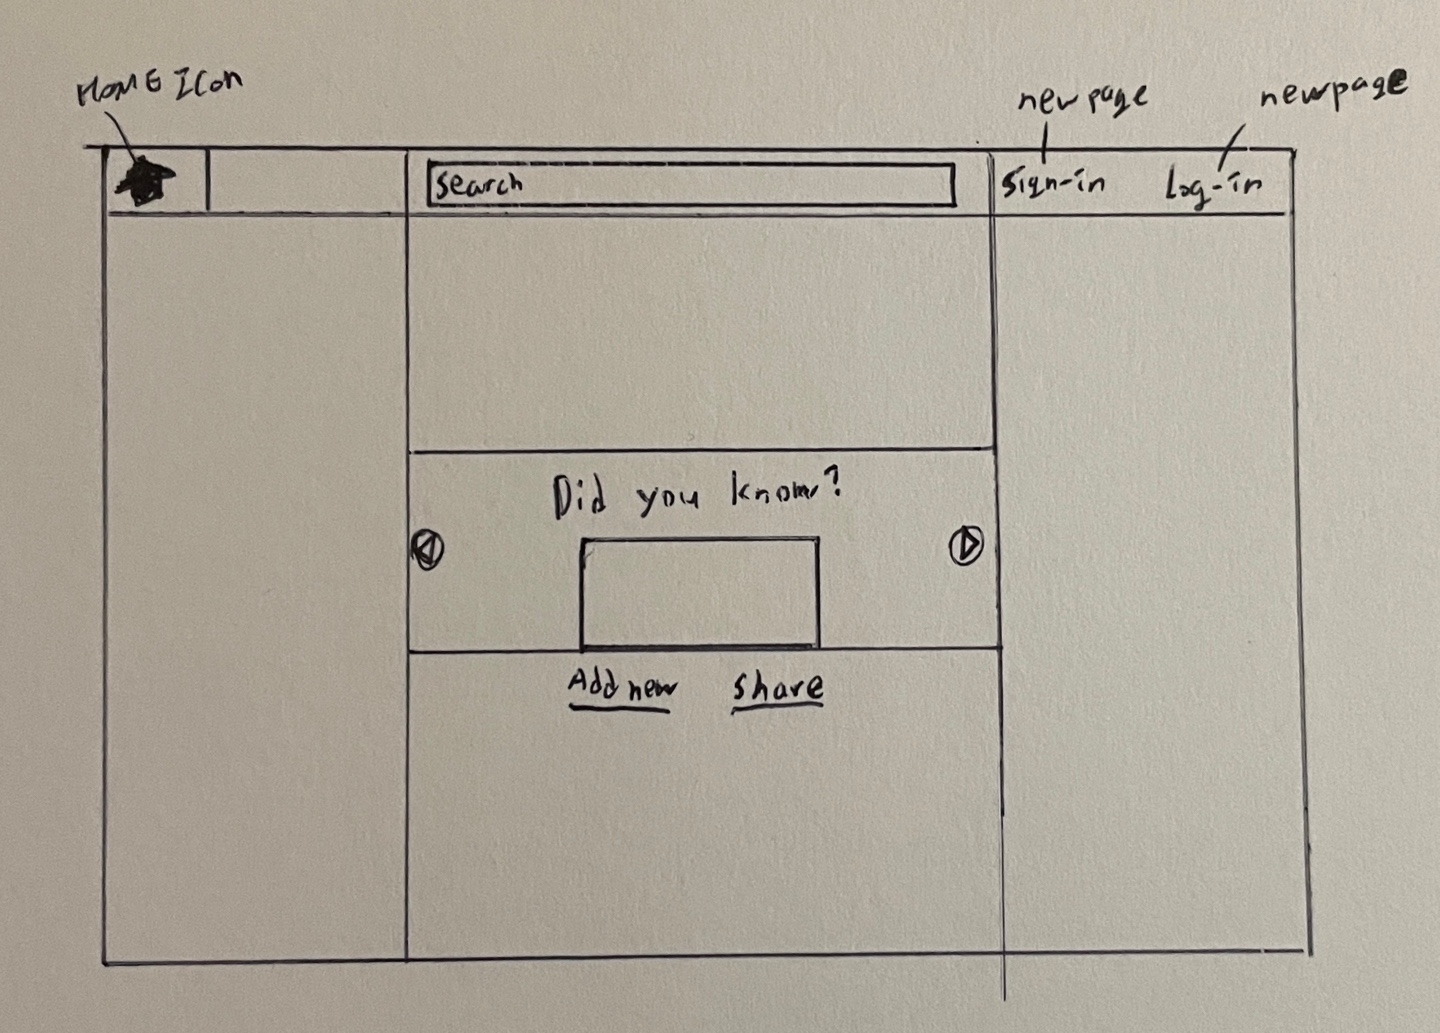 HOME Icon
new page
new page
search
sign-in
Log-in
Did you know?
Add new
share